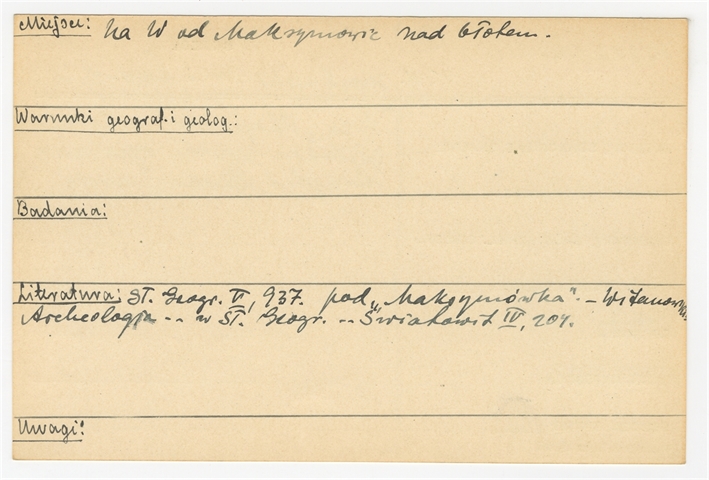 Miejsce: na W od Maksymowic nad błotem.
Warunki geograf. i geolog.:
Badania:
Literatura: Sł. Geogr. V, 937. pod „Maksymówka". – Witanowski
Archeologja -- w Sł. Geogr. -- Światowit IV, 204.
Uwagi: